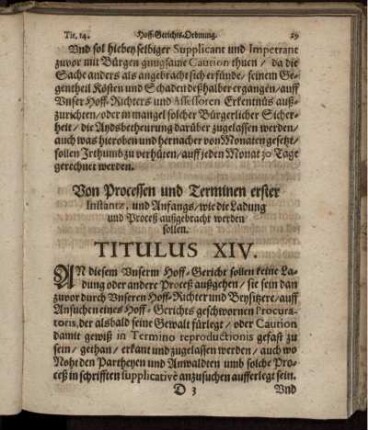 Tit. 14. Hoff-Gerichts-Ordnung. 29
Vnd sol hiebey selbiger Supplicant und Impetrant
zuvor mit Bürgen gnugsame Caution thuen / da die
Sache anders als angebracht sich erfünde / seinem Ge-
gentheil Kosten und Schaden deßhalber ergangen / auff
Vnser Hoff-Richters und Assessoren Erkentnüs auß-
zurichten / oder in mangel solcher Bürgerlicher Sicher-
heit / die Aydsbetheurung darüber zugelassen werden /
auch was hieroben und hernacher von Monaten gesetzt /
sollen Irthumb zu verhüten / auff jeden Monat 30 Tage
gerechnet werden.
Von Processen und Terminen erster
Instantz, und Anfangs / wie die Ladung
und Proceß außgebracht werden
sollen.
TITULUS XIV.
AN diesem Vnserm Hoff-Gericht sollen keine La-
dung oder andere Proceß außgehen / sie sein dan
zuvor durch Vnseren Hoff-Richter und Beysitzere / auff
Ansuchen eines Hoff-Gerichts geschwornen Procura-
toris, der alsbald seine Gewalt fürlege / oder Caution
damit gewiß in Termino reproductionis gefast zu
sein / gethan / erkant und zugelassen werden / auch wo
Noht den Partheyen und Anwaldten umb solche Pro-
ceß in schrifften supplicativè anzusuchen aufferlegt sein.
D 3 Vnd